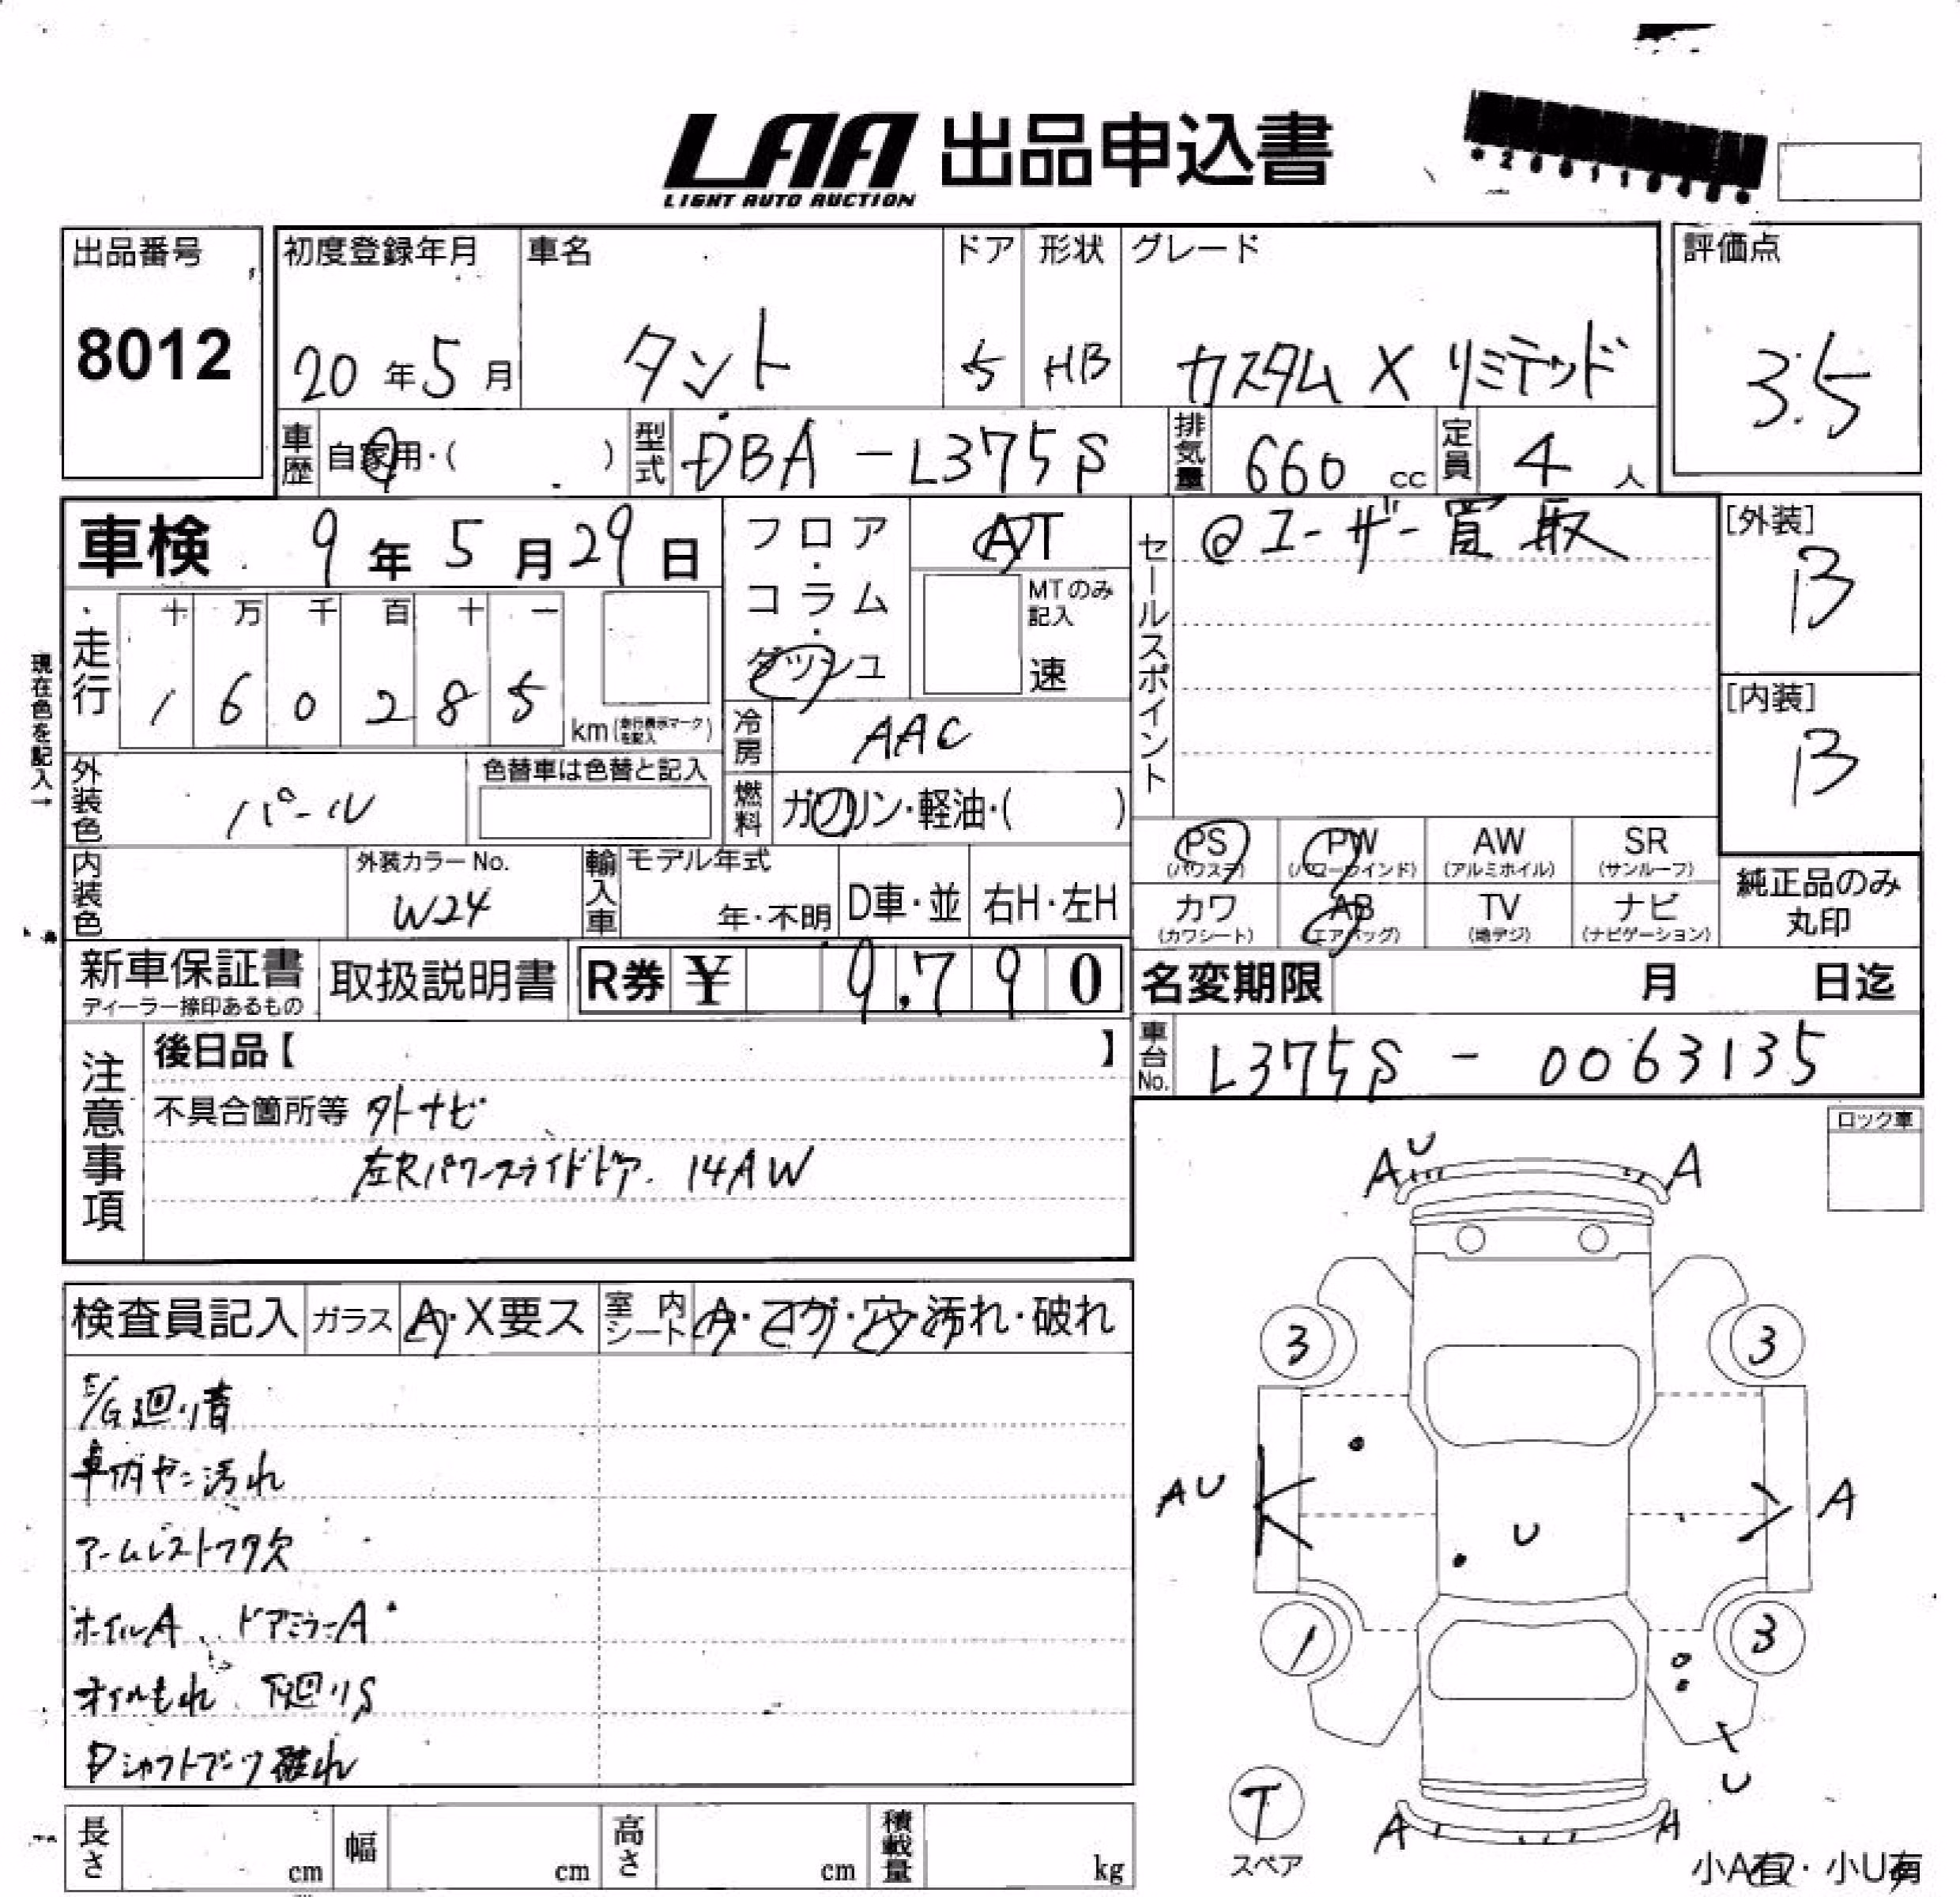 LAA 出品申込書
LIGHT AUTO AUCTION
出品番号 8012
初度登録年月 20年5月
車名 タント
ドア 5
形状 HB
グレード カスタム X リミテッド
評価点 3.5
車歴 自家用・( )
型式 DBA-L375S
排気量 660cc
定員 4人
車検 9年5月29日
フロア・コラム・ダッシュ
AT
MTのみ記入 速
セールスポイント @ユーザー買取
[外装] B
[内装] B
現在色を記入→
走行 十万千百十一
160285 km(走行表示マークを記入)
冷房 AAC
外装色 パール
色替車は色替と記入
燃料 ガソリン・軽油・( )
内装色
外装カラーNo. W24
輸入車 モデル年式 年・不明 D車・並 右H・左H
PS (パワステ) PW (パワーウインド) AW (アルミホイル) SR (サンルーフ)
カワ (カワシート) AB (エアバッグ) TV (地デジ) ナビ (ナビゲーション)
純正品のみ丸印
新車保証書 ディーラー捺印あるもの
取扱説明書
R券 ¥ 9,790
名変期限 月 日迄
車台No. L375S-0063135
注意事項
後日品【 】
不具合箇所等 外ナビ
左Rパワースライドドア. 14AW
ロック車
検査員記入 ガラス A・X要ス 室内シート A・コガ・穴・汚れ・破れ
E/G廻り音
車内ヤニ汚れ
アームレストフタ欠
ホイルA、ドアミラーA
オイルもれ、下廻りS
Dシャフトブーツ破れ
長さ cm 幅 cm 高さ cm 積載量 kg
U
A A
3 3
AU A
U
1 3
U
T
スペア
A A
小A有・小U有